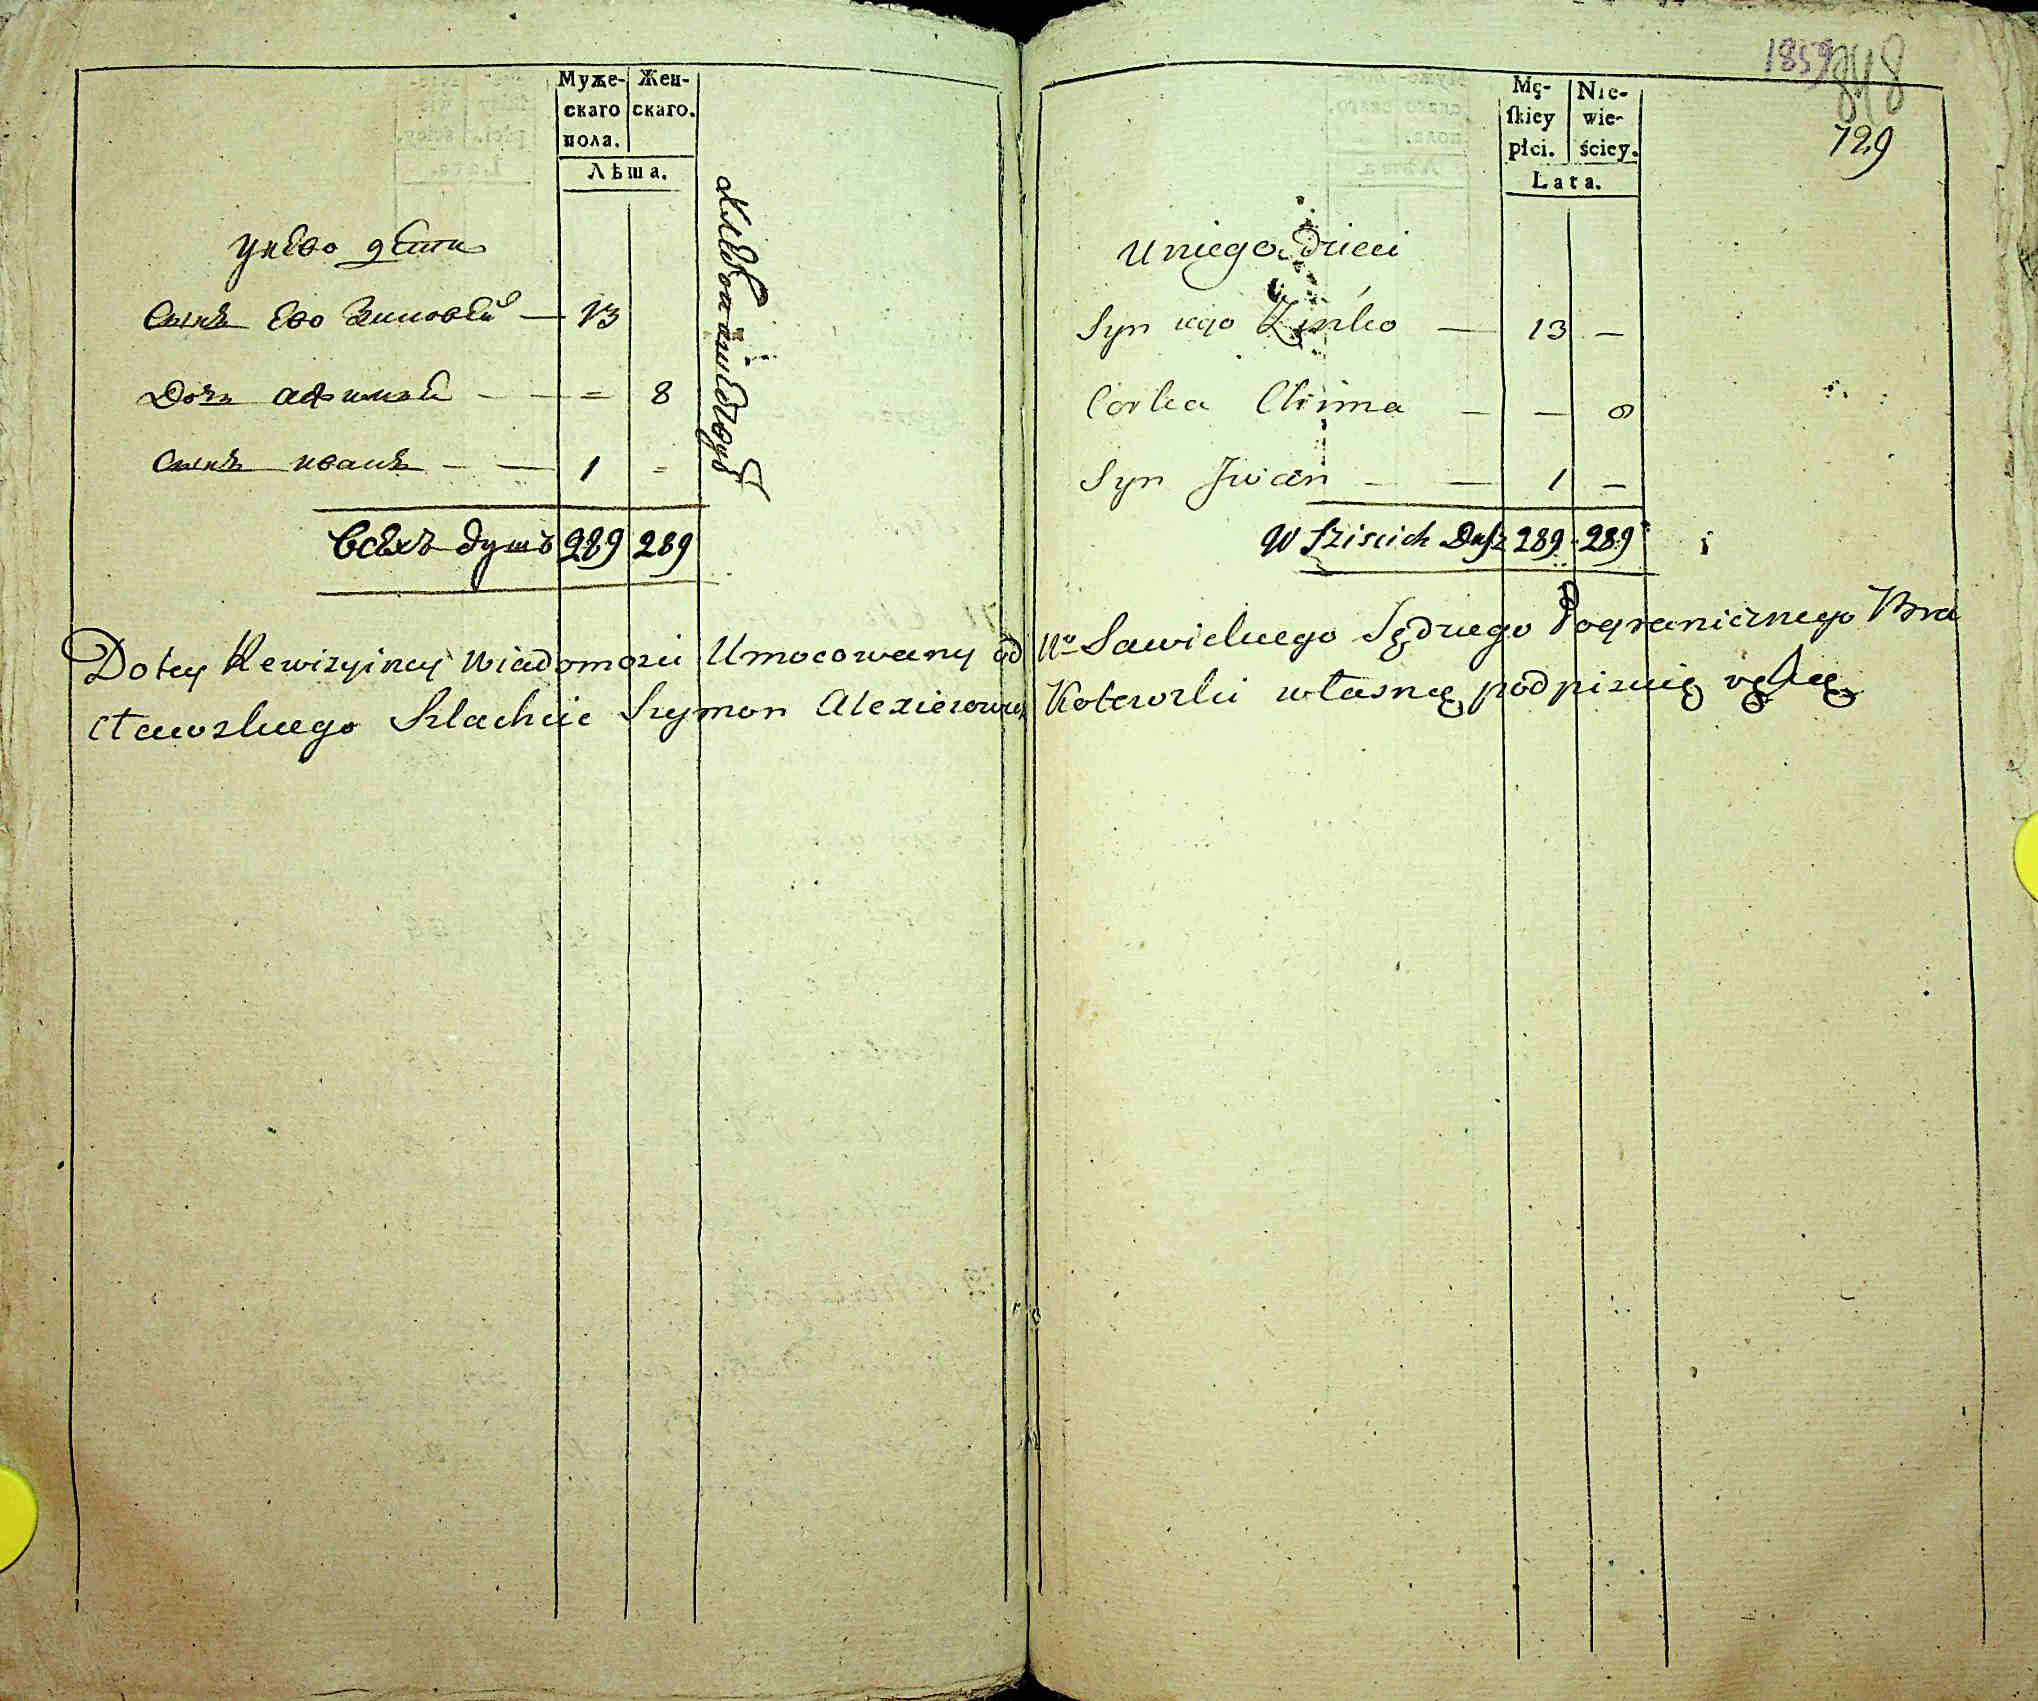 Муже- Жен-
скаго скаго.
пола.
Лѣта.
у нево дѣти
Сынъ Ево Зиновѣй — 13
Дочь Афимья — — = 8
Сынъ иванъ — — 1 =
всѣхъ душъ 289 289
1859 848
729
Mę- Nie-
ſkiey wie-
płci. ściey.
Lata.
U niego dzieci
Syn iego Zinko — 13 —
Corka Chima — — 8
Syn Jwan — — 1 —
W Sziscich Dusz 289 289
Do tey Rewizyiney Wiadomosci Umocowany od Wo Sawickiego Sędziego Pogranicznego Bra
cławskiego Szlachcic Szymon Alexierowicz Kotowski własną podpisuię ręką